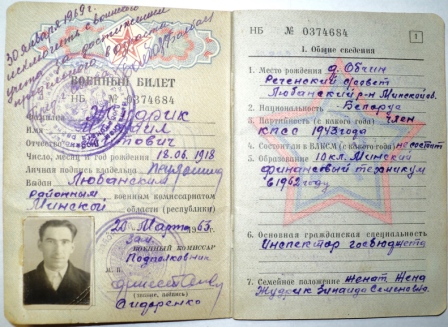 30 января 1969 г.
исключить с воинского
учета за достижением
предельного возраста
ВОЕННЫЙ БИЛЕТ
НБ № 0374684
Жудрик
Имя Михаил
Отчество
Число, месяц и год рождения 18.06.1918
Личная подпись владельца
Выдан Любанским
районным военным комиссариатом
Минской области (республики)
20 Марта 63 г.
Зам.
ВОЕННЫЙ КОМИССАР
Подполковник
М. П.
(звание, подпись)
Сидоренко
НБ № 0374684
1
I. Общие сведения
1. Место рождения д. Обчин
Реченский с/совет
Любанский р-н Минской обл.
2. Национальность Беларус
3. Партийность (с какого года) член
КПСС 1943 года
4. Состоит ли в ВЛКСМ (с какого года) не состоит
5. Образование 10 кл. Минский
финансовый техникум
в 1963 году
6. Основная гражданская специальность
Инспектор госбюджета
7. Семейное положение женат жена
Жудрик Зинаида Семеновна